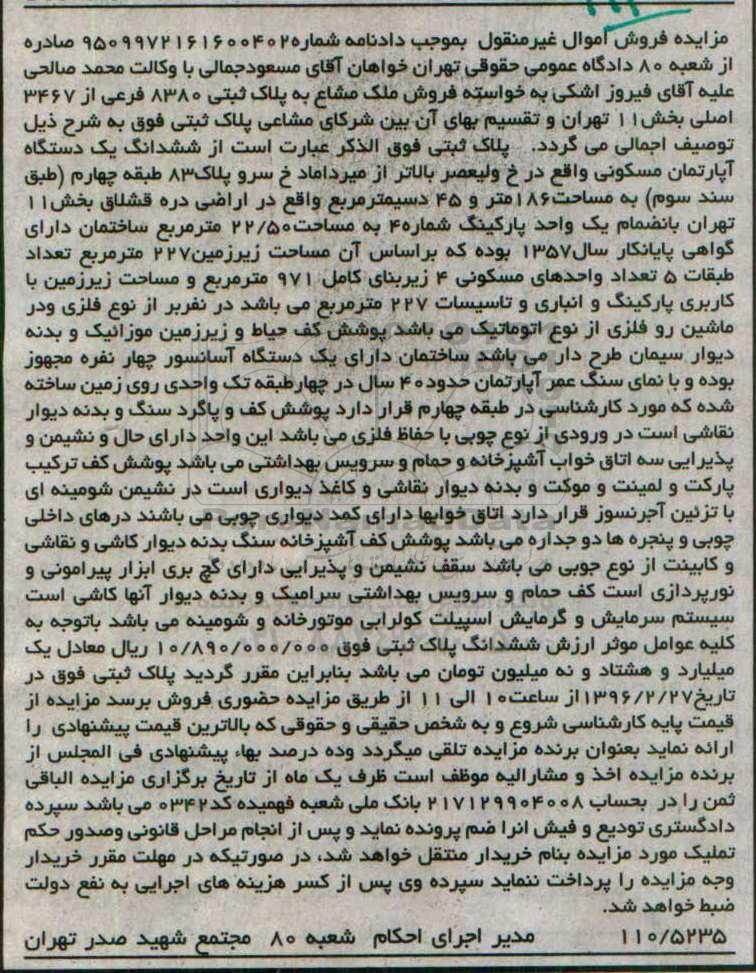 مزایده فروش اموال غیرمنقول بموجب دادنامه شماره۹۵۰۹۹۷۲۱۶۱۶۰۰۴۰۲ صادره
از شعبه ۸۰ دادگاه عمومی حقوقی تهران خواهان آقای مسعودجمالی با وکالت محمد صالحی
علیه آقای فیروز اشکی به خواسته فروش ملک مشاع به پلاک ثبتی ۸۳۸۰ فرعی از ۳۴۶۷
اصلی بخش۱۱ تهران و تقسیم بهای آن بین شرکای مشاعی پلاک ثبتی فوق به شرح ذیل
توصیف اجمالی می گردد. پلاک ثبتی فوق الذکر عبارت است از ششدانگ یک دستگاه
آپارتمان مسکونی واقع در خ ولیعصر بالاتر از میرداماد خ سرو پلاک۸۳ طبقه چهارم (طبق
سند سوم) به مساحت۱۸۶متر و ۴۵ دسیمترمربع واقع در اراضی دره قشلاق بخش۱۱
تهران بانضمام یک واحد پارکینگ شماره۴ به مساحت۲۲/۵۰ مترمربع ساختمان دارای
گواهی پایانکار سال۱۳۵۷ بوده که براساس آن مساحت زیرزمین۲۲۷ مترمربع تعداد
طبقات ۵ تعداد واحدهای مسکونی ۴ زیربنای کامل ۹۷۱ مترمربع و مساحت زیرزمین با
کاربری پارکینگ و انباری و تاسیسات ۲۲۷ مترمربع می باشد در نفربر از نوع فلزی ودر
ماشین رو فلزی از نوع اتوماتیک می باشد پوشش کف حیاط و زیرزمین موزائیک و بدنه
دیوار سیمان طرح دار می باشد ساختمان دارای یک دستگاه آسانسور چهار نفره مجهوز
بوده و با نمای سنگ عمر آپارتمان حدود۴۰ سال در چهارطبقه تک واحدی روی زمین ساخته
شده که مورد کارشناسی در طبقه چهارم قرار دارد پوشش کف و پاگرد سنگ و بدنه دیوار
نقاشی است در ورودی از نوع چوبی با حفاظ فلزی می باشد این واحد دارای حال و نشیمن و
پذیرایی سه اتاق خواب آشپزخانه و حمام و سرویس بهداشتی می باشد پوشش کف ترکیب
پارکت و لمینت و موکت و بدنه دیوار نقاشی و کاغذ دیواری است در نشیمن شومینه ای
با تزئین آجرنسوز قرار دارد اتاق خوابها دارای کمد دیواری چوبی می باشند درهای داخلی
چوبی و پنجره ها دو جداره می باشد پوشش کف آشپزخانه سنگ بدنه دیوار کاشی و نقاشی
و کابینت از نوع چوبی می باشد سقف نشیمن و پذیرایی دارای گچ بری ابزار پیرامونی و
نورپردازی است کف حمام و سرویس بهداشتی سرامیک و بدنه دیوار آنها کاشی است
سیستم سرمایش و گرمایش اسپیلت کولرابی موتورخانه و شومینه می باشد باتوجه به
کلیه عوامل موثر ارزش ششدانگ پلاک ثبتی فوق ۱۰/۸۹۰/۰۰۰/۰۰۰ ریال معادل یک
میلیارد و هشتاد و نه میلیون تومان می باشد بنابراین مقرر گردید پلاک ثبتی فوق در
تاریخ۱۳۹۶/۲/۲۷از ساعت۱۰ الی ۱۱ از طریق مزایده حضوری فروش برسد مزایده از
قیمت پایه کارشناسی شروع و به شخص حقیقی و حقوقی که بالاترین قیمت پیشنهادی را
ارائه نماید بعنوان برنده مزایده تلقی میگردد وده درصد بهاء پیشنهادی فی المجلس از
برنده مزایده اخذ و مشارالیه موظف است ظرف یک ماه از تاریخ برگزاری مزایده الباقی
ثمن را در بحساب ۲۱۷۱۲۹۹۰۴۰۰۸ بانک ملی شعبه فهمیده کد۰۳۴۲ می باشد سپرده
دادگستری تودیع و فیش انرا ضم پرونده نماید و پس از انجام مراحل قانونی وصدور حکم
تملیک مورد مزایده بنام خریدار منتقل خواهد شد، در صورتیکه در مهلت مقرر خریدار
وجه مزایده را پرداخت ننماید سپرده وی پس از کسر هزینه های اجرایی به نفع دولت
ضبط خواهد شد.
۱۱۰/۵۲۳۵ مدیر اجرای احکام شعبه ۸۰ مجتمع شهید صدر تهران